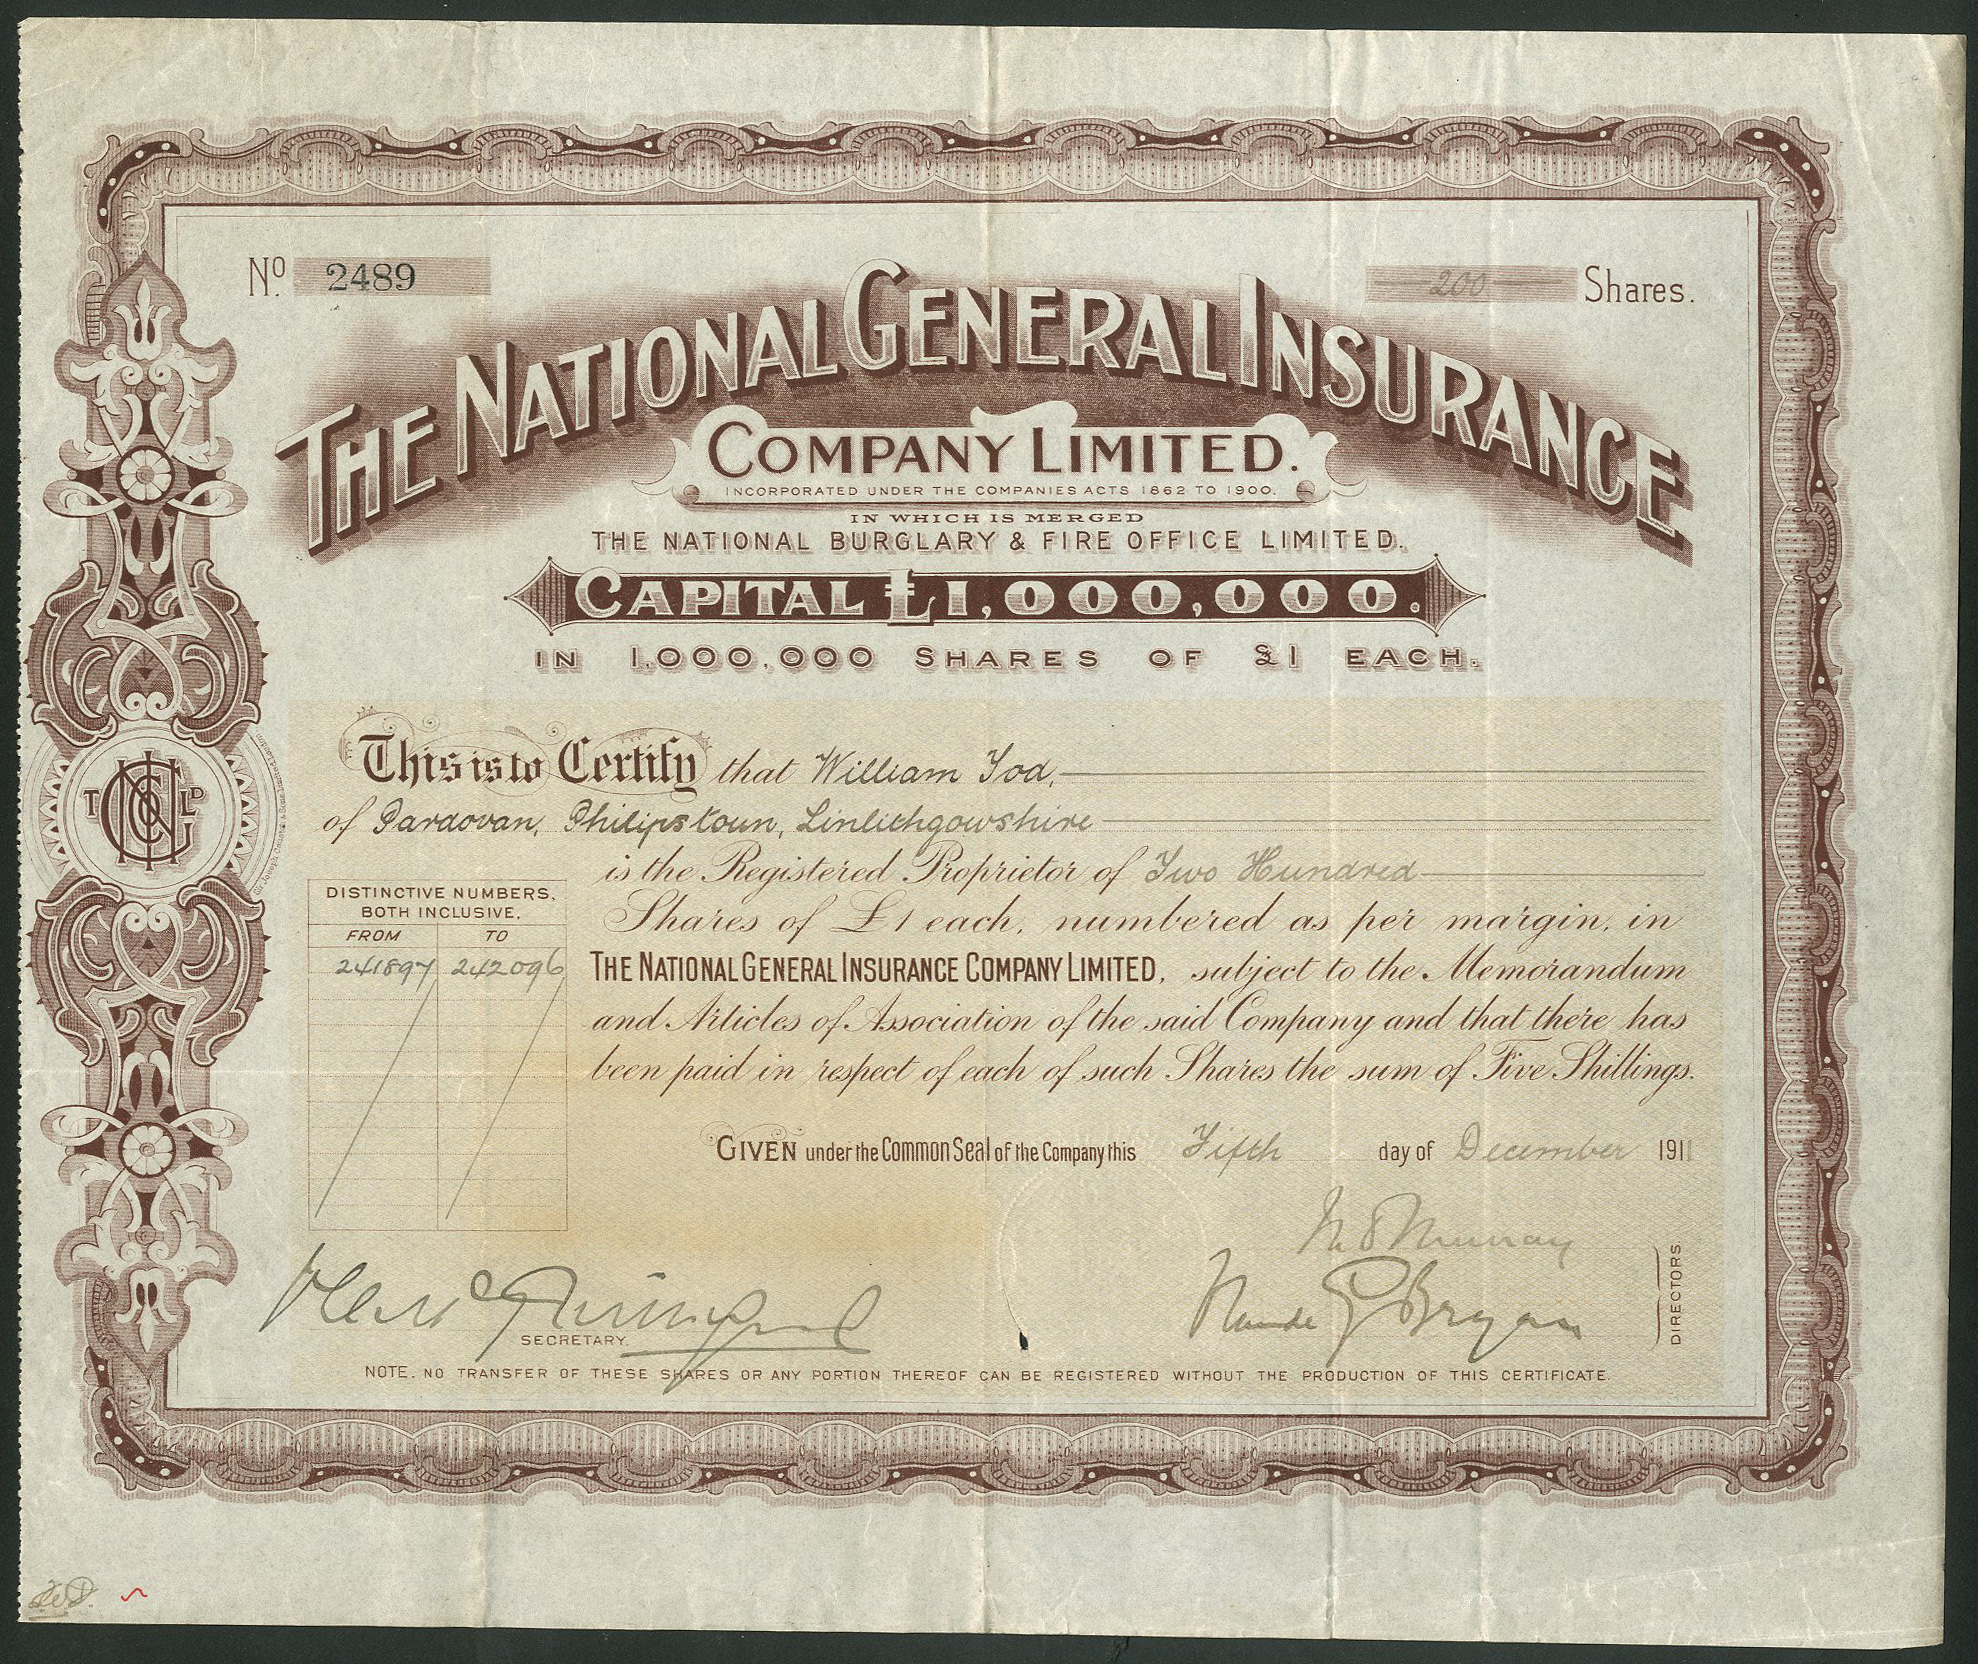 No. 2489
200 Shares.
THE NATIONAL GENERAL INSURANCE
COMPANY LIMITED.
INCORPORATED UNDER THE COMPANIES ACTS 1862 TO 1900.
IN WHICH IS MERGED
THE NATIONAL BURGLARY & FIRE OFFICE LIMITED.
CAPITAL £1,000,000.
IN 1,000,000 SHARES OF £1 EACH.
This is to Certify that William Tod,
of Pardovan, Philipstoun, Linlithgowshire
is the Registered Proprietor of Two Hundred
Shares of £1 each, numbered as per margin, in
THE NATIONAL GENERAL INSURANCE COMPANY LIMITED, subject to the Memorandum
and Articles of Association of the said Company and that there has
been paid in respect of each of such Shares the sum of Five Shillings.
DISTINCTIVE NUMBERS,
BOTH INCLUSIVE.
FROM TO
241897 242096
GIVEN under the Common Seal of the Company this Fifth day of December 1911
Murray
Bryan
DIRECTORS.
SECRETARY.
NOTE. NO TRANSFER OF THESE SHARES OR ANY PORTION THEREOF CAN BE REGISTERED WITHOUT THE PRODUCTION OF THIS CERTIFICATE.